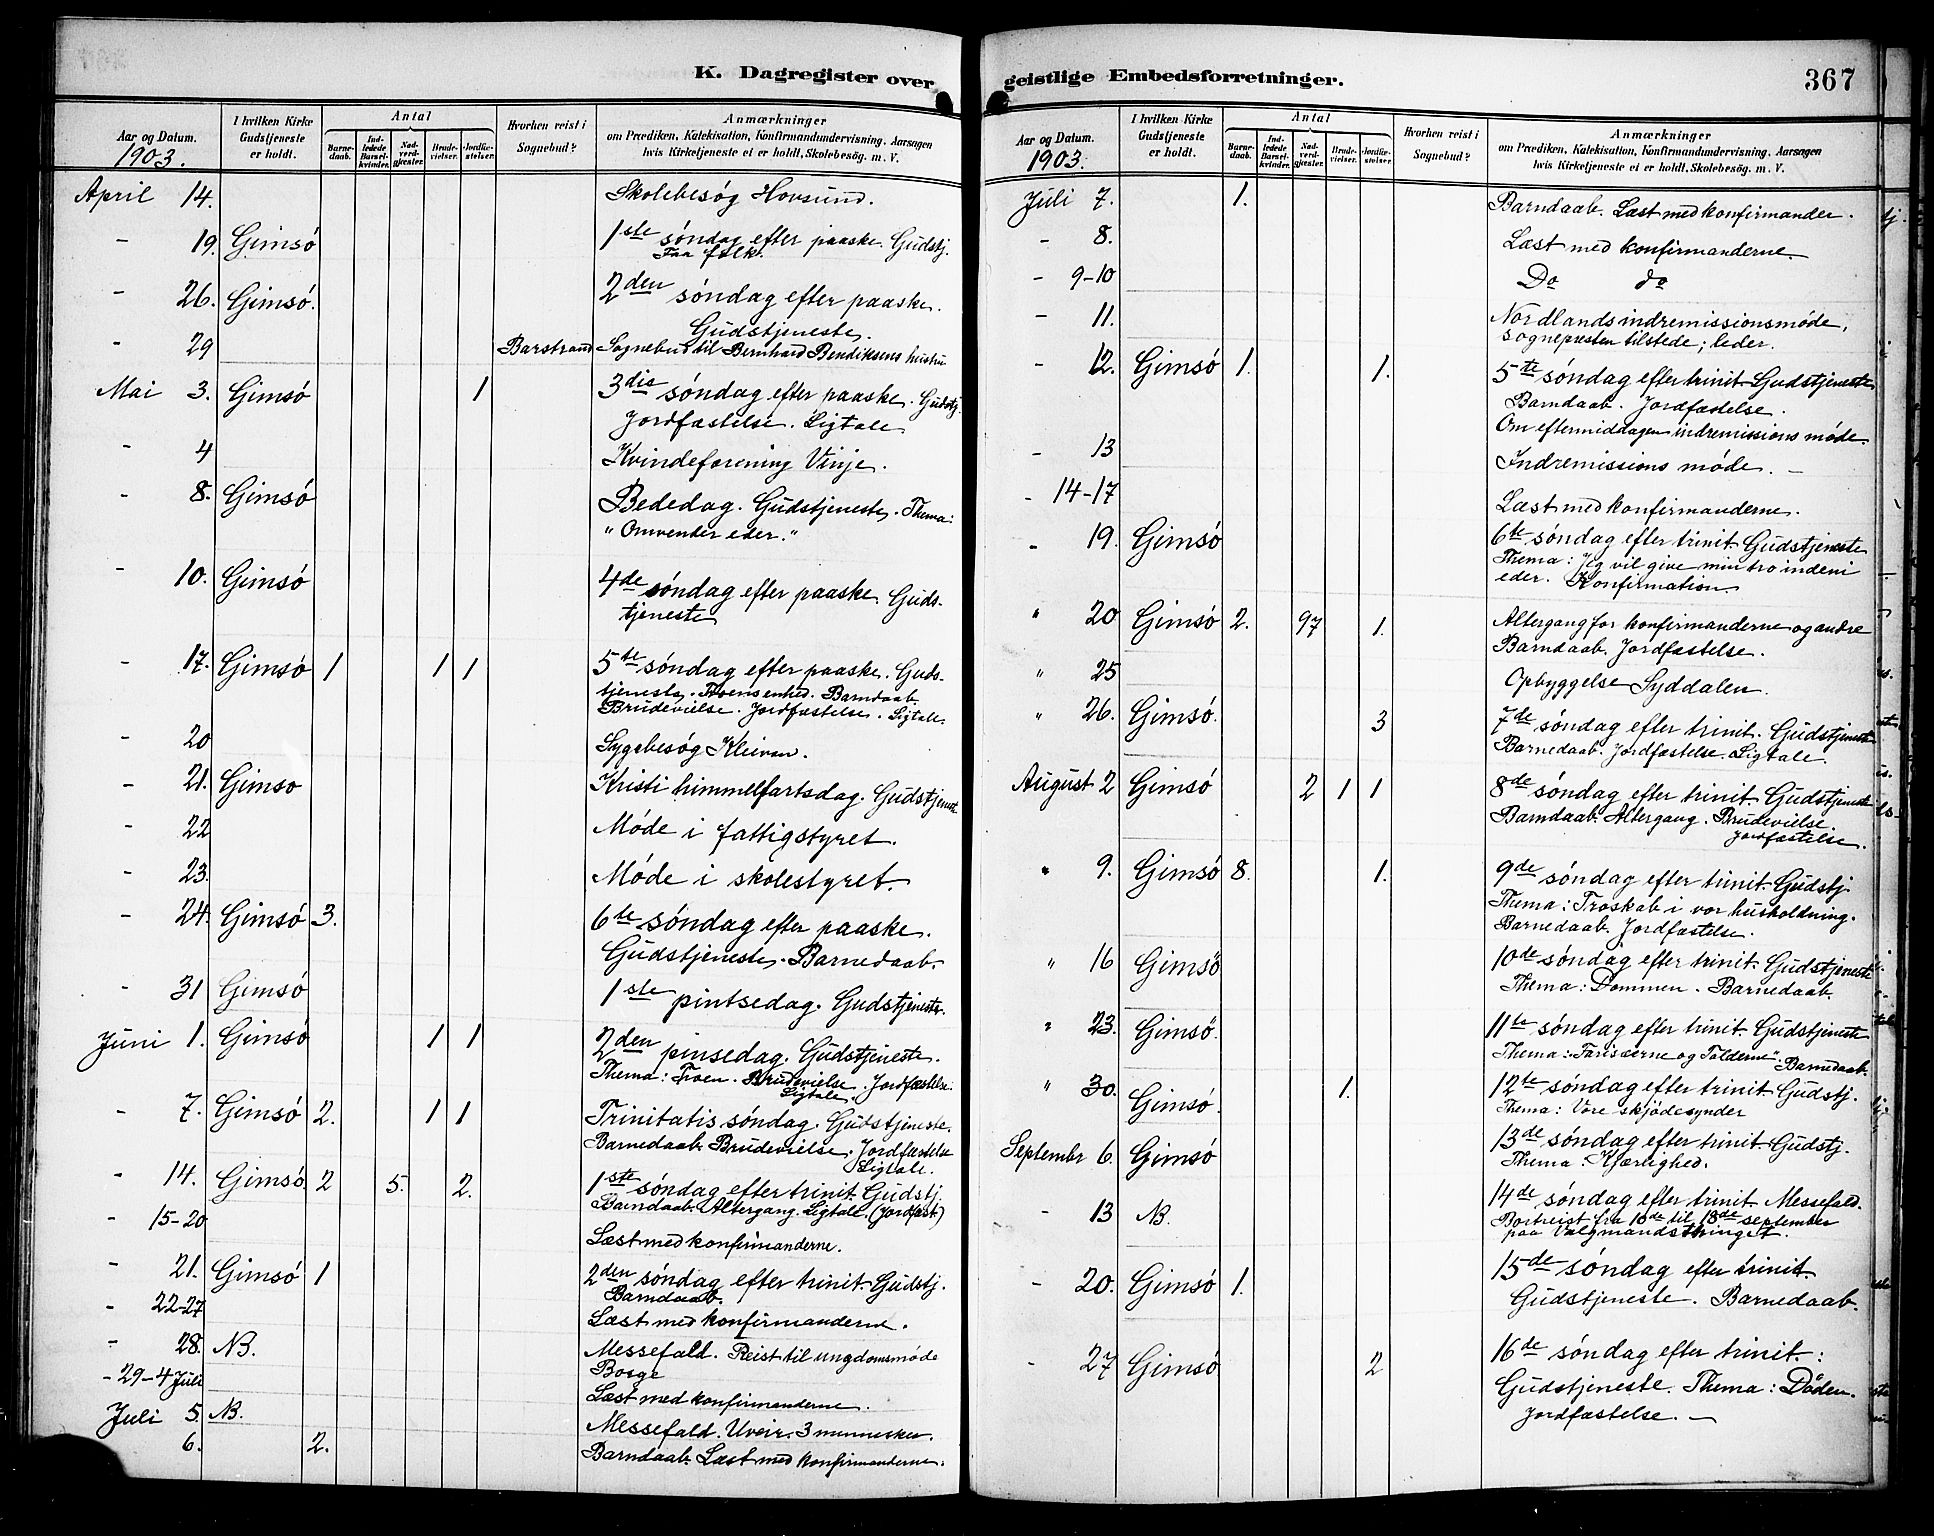 K. Dagregister over
Aar og Datum.
1903.
I hvilken Kirke Gudstjeneste er holdt.
Antal
Barnedaab.
Indledede Barselkvinder.
Nadverdgjester.
Brudevielser.
Jordfæstelser.
Hvorhen reist i Sognebud?
Anmærkninger
om Prædiken, Katekisation, Konfirmandundervisning, Aarsagen
hvis Kirketjeneste ei er holdt, Skolebesøg. m. V.
April 14. Skolebesøg Hovsund.
- 19. Gimsø 1ste søndag efter paaske. Gudstj.
Faa folk.
- 26. Gimsø. 2den søndag efter paaske.
Gudstjeneste.
- 29 Barstrand Sognebud til Bernhard Bendiksens hustru
Mai 3. Gimsø 1 3die søndag efter paaske. Gudstj.
Jordfæstelse. Ligtale
- 4 Kvindeforening Vinje.
- 8. Gimsø Bededag. Gudstjeneste. Thema:
"Omvender eder."
- 10. Gimsø 4de søndag efter paaske. Guds-
tjeneste
- 17. Gimsø 1 1 1 5te søndag efter paaske. Guds-
tjeneste. Troensenhed. Barndaab.
Brudevielse. Jordfæstelse. Ligtale.
- 20 Sygebesøg Kleiven.
- 21. Gimsø Kristi himmelfartsdag. Gudstjeneste
- 22 Møde i fattigstyret.
- 23. Møde i skolestyret.
- 24. Gimsø 3. 6te søndag efter paaske.
Gudstjeneste. Barnedaab.
- 31 Gimsø 1ste pintsedag. Gudstjeneste.
Juni 1. Gimsø 1 1 2den pinsedag. Gudstjeneste.
Thema: Troen. Brudevielse. Jordfæstelse.
Ligtale.
- 7. Gimsø 2. 1 1 Trinitatis søndag. Gudstjeneste.
Barnedaab. Brudevielse. Jordfæstelse
Ligtale.
- 14. Gimsø 2 5. 2. 1ste søndag efter trinit. Gudstj.
Barndaab. Altergang. Ligtale. (Jordfæst.)
- 15-20 Læst med konfirmanderne.
- 21. Gimsø 1 2den søndag efter trinit. Gudstj.
Barndaab.
- 22-27 Læst med konfirmanderne.
- 28. NB. Messefald. Reist til ungdomsmøde
Borge
- 29-4 Juli Læst med konfirmanderne.
Juli 5. NB. Messefald. Uveir. 3 mennesker.
6. 2. Barndaab. Læst med konfirmanderne.
geistlige Embedsforretninger.
367
Aar og Datum.
1903.
I hvilken Kirke Gudstjeneste er holdt.
Antal
Barnedaab.
Indledede Barselkvinder.
Nadverdgjester.
Brudevielser.
Jordfæstelser.
Hvorhen reist i Sognebud?
Anmærkninger
om Prædiken, Katekisation, Konfirmandundervisning, Aarsagen
hvis Kirketjeneste ei er holdt, Skolebesøg. m. V.
Juli 7. 1. Barndaab. Læst med konfirmander.
- 8. Læst med konfirmanderne.
- 9-10 Do do
- 11. Nordlands indremissionsmøde,
sognepresten tilstede; leder.
- 12. Gimsø 1. 1. 5te søndag efter trinit. Gudstjeneste
Barndaab. Jordfæstelse.
Om eftermiddagen indremissions møde.
- 13 Indremissions møde. -
- 14-17 Læst med konfirmanderne.
- 19. Gimsø 6te søndag efter trinit. Gudstjeneste
Thema: Jeg vil give min tro indeni
eder. Konfirmation.
" 20 Gimsø 2. 97 1. Altergang for konfirmanderne og andre
Barndaab. Jordfæstelse.
" 25 Opbyggelse Syddalen.
" 26. Gimsø. 3 7de søndag efter trinit. Gudstjeneste
Barnedaab. Jordfæstelse. Ligtale.
August 2 Gimsø 2 1 1 8de søndag efter trinit. Gudstjeneste
Barndaab. Altergang. Brudevielse.
Jordfæstelse.
" 9. Gimsø 8. 1. 9de søndag efter trinit. Gudstj.
Thema: Troskab i vor husholdning.
Barnedaab. Jordfæstelse.
" 16 Gimsö 10de søndag efter trinit. Gudstjeneste
Thema: Dommen. Barnedaab.
" 23. Gimsö. 11te søndag efter trinit. Gudstjeneste
Thema: "Fariseerne og Tolderne". Barnedaab.
" 30. Gimsö. 1. 12te søndag efter trinit. Gudstj.
Thema: Vore skjødesynder
September 6. Gimsø 13de søndag efter trinit. Gudstj.
Thema: Kjærlighed.
- 13 NB. 14de søndag efter trinit. Messefald.
Bortreist fra 10de til 18de september
paa Valgmandsthinget.
- 20. Gimsø 1. 15de søndag efter trinit.
Gudstjeneste. Barnedaab.
- 27 Gimsø 2 16de søndag efter trinit.:
Gudstjeneste. Thema: Döden.
Jordfæstelse. -